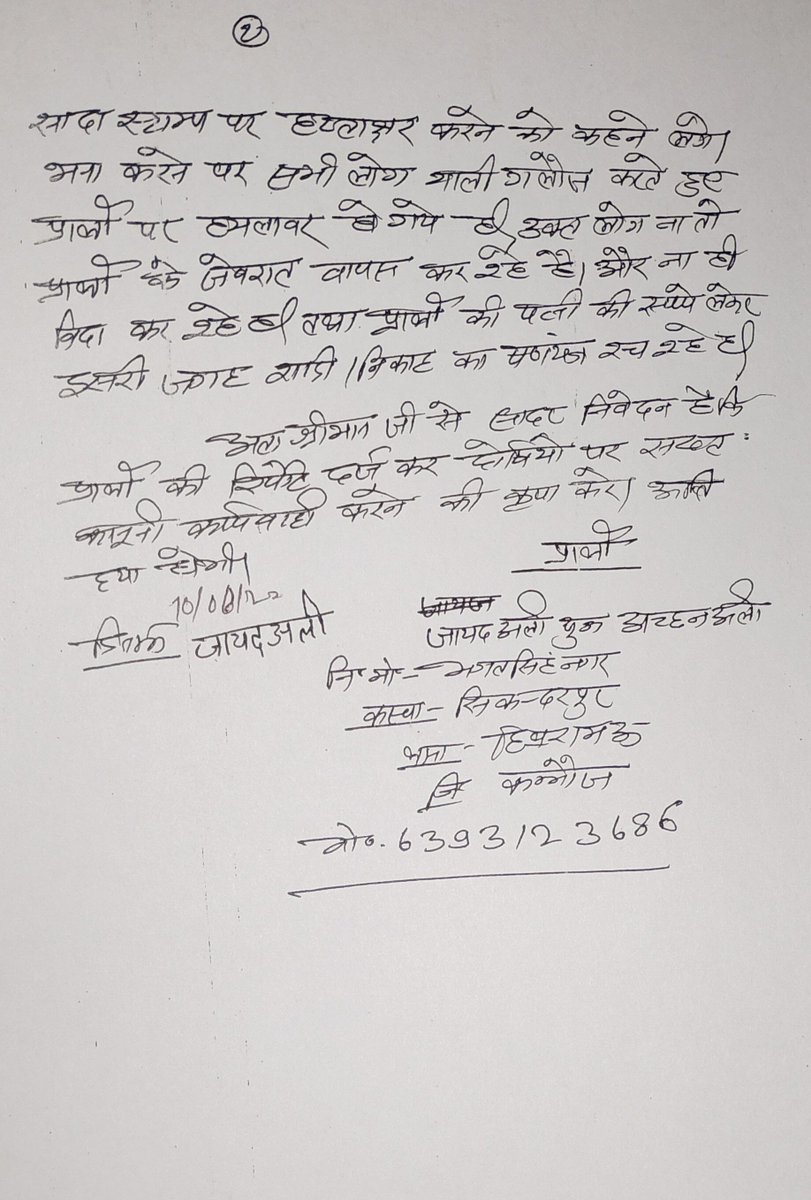 २
सादा स्टाम्प पर हस्ताक्षर करने को कहने लगे।
मना करने पर सभी लोग गाली गलौज करते हुए
प्रार्थी पर हमलावर हो गये है। उक्त लोग ना तो
प्रार्थी के जेवरात वापस कर रहे है। और ना ही
विदा कर रहे है। तथा प्रार्थी की पत्नी की रूपये लेकर
दूसरी जगह शादी/निकाह का षणयंत्र रच रहे है।
अतः श्रीमान जी से सादर निवेदन है कि
प्रार्थी की रिपोर्ट दर्ज कर दोषियो पर सख्त
कानूनी कार्यवाही करने की कृपा करे। अति
दया होगी।
प्रार्थी
दिनांक जायदअली
जायदअली पुत्र अच्छनअली
नि॰ मो॰- भगतसिंह नगर
कस्वा- सिकन्दरपुर
थाना- छिबरामऊ
जि कन्नौज
मो॰. 6393123686